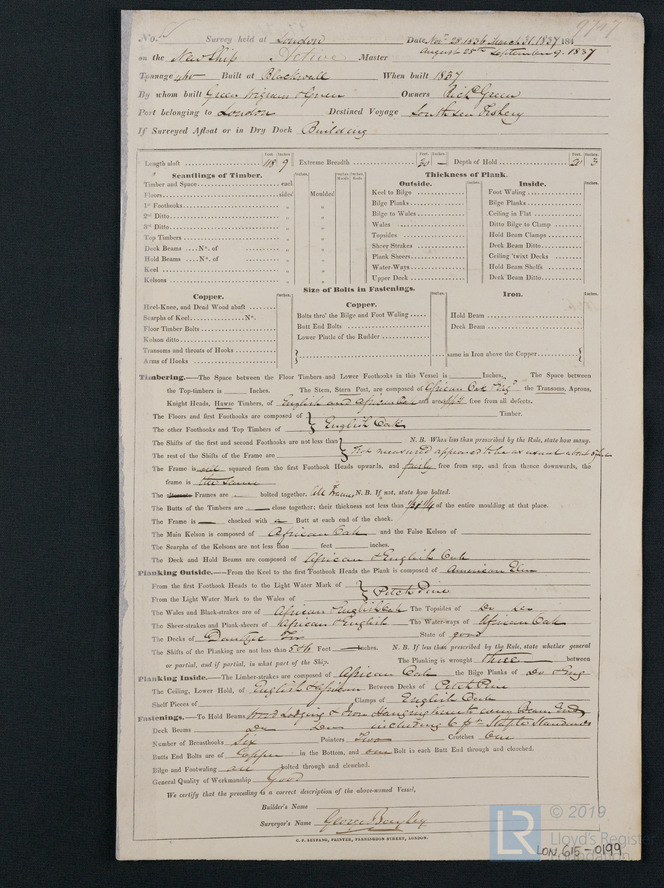 No. Survey held at London Date Nov 28 1836 March 31. 1837 184 9797
August 25th September 9. 1837
on the New Ship Active Master
Tonnage 460 Built at Blackwall When built 1837
By whom built Green Wigram & Green Owners Richd Green
Port belonging to London Destined Voyage South Sea Fishery
If Surveyed Afloat or in Dry Dock Building
Feet Inches. Feet Inches. Feet Inches.
Length aloft 118 9 Extreme Breadth 30 — Depth of Hold 20 3
Scantlings of Timber.
Timber and Space each
Floors sided
1st Foothooks „
2nd Ditto „
3rd Ditto „
Top Timbers „
Deck Beams No. of „
Hold Beams No. of „
Keel „
Kelsons „
Moulded
Thickness of Plank.
Outside.
Keel to Bilge
Bilge Planks
Bilge to Wales
Wales
Topsides
Sheer Strakes
Plank Sheers
Water-Ways
Upper Deck
Inside.
Foot Waling
Bilge Planks
Ceiling in Flat
Ditto Bilge to Clamp
Hold Beam Clamps
Deck Beam Ditto
Ceiling 'twixt Decks
Hold Beam Shelfs
Deck Beam Ditto
Size of Bolts in Fastenings.
Copper.
Heel-Knee, and Dead Wood abaft
Scarphs of Keel No.
Floor Timber Bolts
Kelson ditto
Transoms and throats of Hooks
Arms of Hooks
Copper.
Bolts thro' the Bilge and Foot Waling
Butt End Bolts
Lower Pintle of the Rudder
Iron.
Hold Beam
Deck Beam
same in Iron above the Copper
Timbering.—The Space between the Floor Timbers and Lower Foothooks in this Vessel is Inches. The Space between
the Top-timbers is Inches. The Stem, Stern Post, are composed of African Oak the Transoms, Aprons,
Knight Heads, Hawse Timbers, of English and African Oak and are free from all defects.
The Floors and first Foothooks are composed of Timber.
The other Foothooks and Top Timbers of English Oak
The Shifts of the first and second Foothooks are not less than N. B. When less than prescribed by the Rule, state how many.
The rest of the Shifts of the Frame are Not measured appeared to be as usual about
The Frame is well squared from the first Foothook Heads upwards, and fairly free from sap, and from thence downwards, the
frame is the same
The alternate Frames are bolted together. All Frames N. B. If not, state how bolted.
The Butts of the Timbers are — close together; their thickness not less than of the entire moulding at that place.
The Frame is — chocked with a Butt at each end of the chock.
The Main Kelson is composed of African Oak and the False Kelson of
The Scarphs of the Kelsons are not less than feet inches.
The Deck and Hold Beams are composed of African & English Oak
Planking Outside.—From the Keel to the first Foothook Heads the Plank is composed of American Elm
From the first Foothook Heads to the Light Water Mark of
From the Light Water Mark to the Wales of Pitch Pine
The Wales and Black-strakes are of African & English Oak The Topsides of Do Do
The Sheer-strakes and Plank-sheers of African & English The Water-ways of African Oak
The Decks of Dantzic Fir State of good
The Shifts of the Planking are not less than 5 & 6 Feet — Inches. N. B. If less than prescribed by the Rule, state whether general
or partial, and if partial, in what part of the Ship. The Planking is wrought three between
Planking Inside.—The Limber-strakes are composed of African Oak the Bilge Planks of Do & Eng
The Ceiling, Lower Hold, of English & African Between Decks of Pitch Pine
Shelf Pieces of Clamps of English Oak
Fastenings.—To Hold Beams Wood Lodging & Iron Hanging knees to every Beam End
Deck Beams Do Do including 6 pr Staple Standards
Number of Breasthooks Six Pointers Two Crutches One
Butts End Bolts are of Copper in the Bottom, and one Bolt is each Butt End through and clenched.
Bilge and Footwaling are bolted through and clenched.
General Quality of Workmanship Good
We certify that the preceding is a correct description of the above-named Vessel,
Builder's Name
Surveyor's Name George Bayley
C. F. SEYFANG, PRINTER, FARRINGDON STREET, LONDON.
LR © 2019
Lloyd's Register
Foundation
LON 615-0199